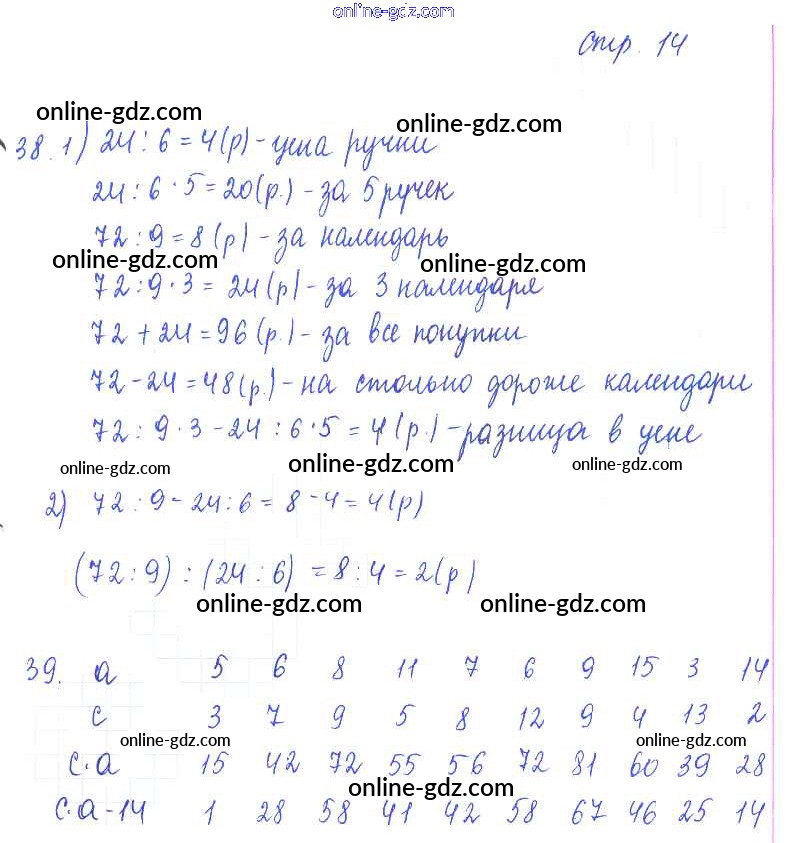 online-gdz.com
стр. 14
online-gdz.com online-gdz.com
38. 1) 24 : 6 = 4 (р) - цена ручки
24 : 6 · 5 = 20 (р.) - за 5 ручек
72 : 9 = 8 (р) - за календарь
online-gdz.com online-gdz.com
72 : 9 · 3 = 24 (р) - за 3 календаря
72 + 24 = 96 (р.) - за все покупки
72 - 24 = 48 (р.) - на столько дороже календари
72 : 9 · 3 - 24 : 6 · 5 = 4 (р.) - разница в цене
online-gdz.com online-gdz.com online-gdz.com
2) 72 : 9 - 24 : 6 = 8 - 4 = 4 (р)
(72 : 9) : (24 : 6) = 8 : 4 = 2 (р)
online-gdz.com online-gdz.com
39. а 5 6 8 11 7 6 9 15 3 14
с 3 7 9 5 8 12 9 4 13 2
online-gdz.com online-gdz.com
с·а 15 42 72 55 56 72 81 60 39 28
online-gdz.com
с·а-14 1 28 58 41 42 58 67 46 25 14